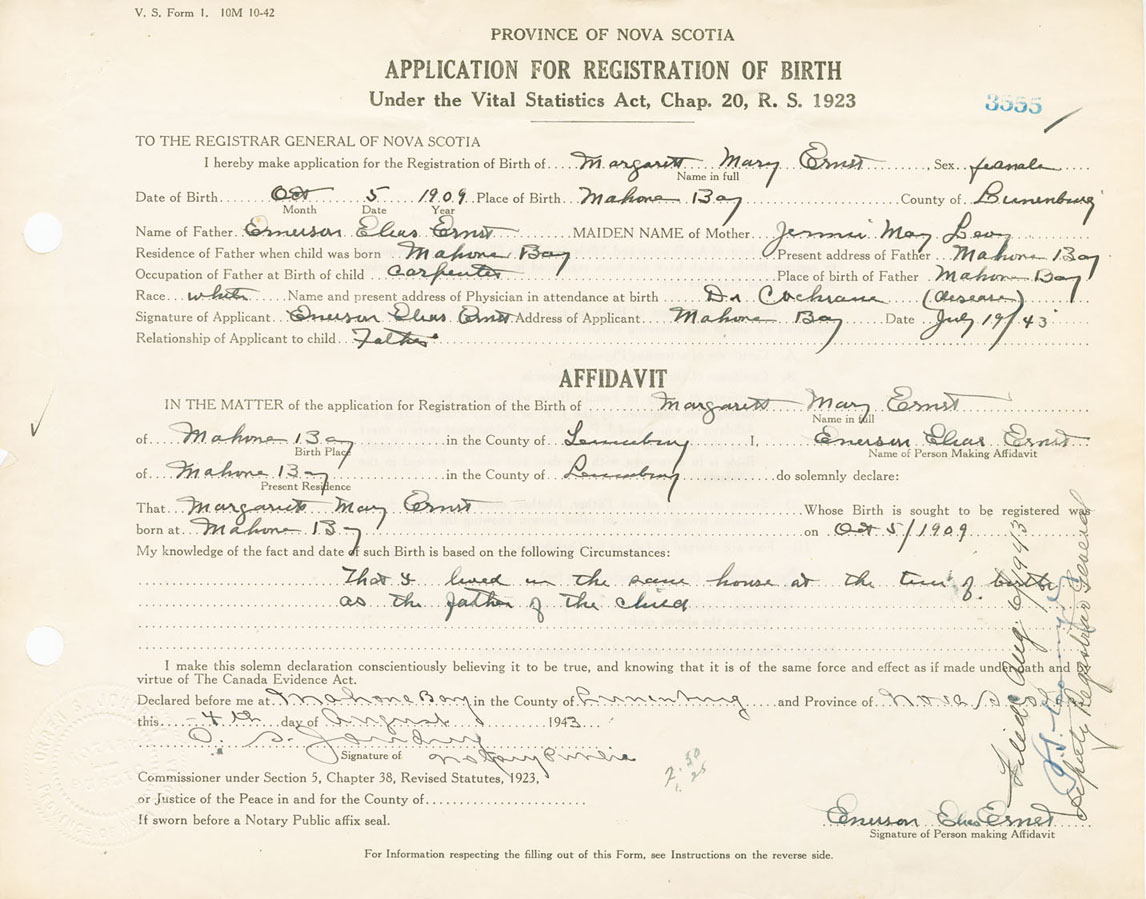 V. S. Form 1. 10M 10-42
PROVINCE OF NOVA SCOTIA
APPLICATION FOR REGISTRATION OF BIRTH
Under the Vital Statistics Act, Chap. 20, R. S. 1923
3555
TO THE REGISTRAR GENERAL OF NOVA SCOTIA
I hereby make application for the Registration of Birth of Margarett Mary Ernst Sex female
Name in full
Date of Birth Oct 5 1909 Place of Birth Mahone Bay County of Lunenburg
Month Date Year
Name of Father Emerson Elias Ernst MAIDEN NAME of Mother Jennie May Levy
Residence of Father when child was born Mahone Bay Present address of Father Mahone Bay
Occupation of Father at Birth of child Carpenter Place of birth of Father Mahone Bay
Race white Name and present address of Physician in attendance at birth Dr Cochrane (disease)
Signature of Applicant Emerson Elias Ernst Address of Applicant Mahone Bay Date July 19/43
Relationship of Applicant to child Father
AFFIDAVIT
IN THE MATTER of the application for Registration of the Birth of Margarett Mary Ernst
Name in full
of Mahone Bay in the County of Lunenburg I, Emerson Elias Ernst
Birth Place Name of Person Making Affidavit
of Mahone Bay in the County of Lunenburg do solemnly declare:
Present Residence
That Margarett Mary Ernst Whose Birth is sought to be registered was
born at Mahone Bay on Oct 5/1909
My knowledge of the fact and date of such Birth is based on the following Circumstances:
That I lived in the same house at the time of birth
as the father of the child
I make this solemn declaration conscientiously believing it to be true, and knowing that it is of the same force and effect as if made under oath and by
virtue of The Canada Evidence Act.
Declared before me at Mahone Bay in the County of Lunenburg and Province of Nova S.
this 4th day of August 1943
Signature of Notary Public
Commissioner under Section 5, Chapter 38, Revised Statutes, 1923,
or Justice of the Peace in and for the County of
If sworn before a Notary Public affix seal.
Emerson Elias Ernst
Signature of Person making Affidavit
For Information respecting the filling out of this Form, see Instructions on the reverse side.
Filed Aug. 6/1943
Deputy Registrar General